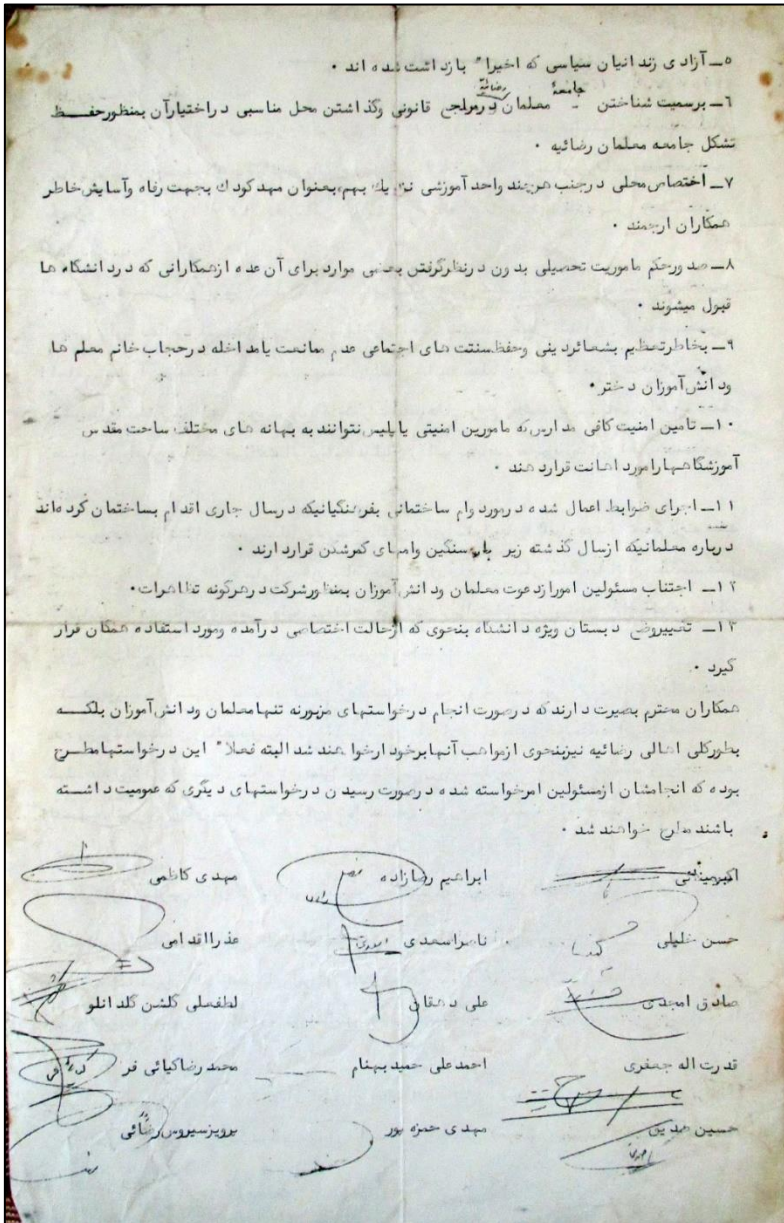 ۵ــ آزادی زندانیان سیاسی که اخیرا" بازداشت شده اند .
جامعهٔ رضائیه
۶ــ برسمیت شناختن معلمان قانونی وگذاشتن محل مناسبی دراختیارآن بمنظورحفــــظ
تشکل جامعه معلمان رضائیه .
۷ــ اختصاص محلی درجنب هرچند واحد آموزشی نزدیك بهم بعنوان مهد کودك بجهت رفاه وآسایش خاطر
همکاران ارجمند .
۸ــ صدورحکم ماموریت تحصیلی بدون درنظرگرفتن بعضی موارد برای آن عده ازهمکارانی که دردانشگاه ها
قبول میشوند .
۹ــ بخاطرتعظیم بشعائردینی وحفظ سنتت های اجتماعی عدم ممانعت یامداخله درحجاب خانم معلم ها
ودانش آموزان دختر .
۱۰ــ تامین امنیت کافی مدارس که مامورین امنیتی یاپلیس نتوانند به بهانه های مختلف ساحت مقدس
آموزشگاههارامورد اهانت قراردهند .
۱۱ــ اجرای ضوابط اعمال شده درمورد وام ساختمانی بفرهنگیانیکه درسال جاری اقدام بساختمان کرده اند
درباره معلمانیکه ازسال گذشته زیر بار سنگین وامهای کمرشکن قراردارند .
۱۲ــ اجتناب مسئولین امورازدعوت معلمان ودانش آموزان بمنظورشرکت درهرگونه تظاهرات .
۱۳ــ تغییروضع دبستان ویژه دانشگاه بنحوی که ازحالت اختصاصی درآمده ومورد استفاده همگان قرار
گیرد .
همکاران محترم بصیرت دارند که درصورت انجام درخواستهای مزبورنه تنهامعلمان ودانش آموزان بلکــــه
بطورکلی اهالی رضائیه نیزبنحوی ازمواهب آنهابرخوردارخواهند شد البته فعلا" این درخواستهامطــرح
بوده که انجامشان ازمسئولین امرخواسته شده درصورت رسیدن درخواستهای دیگری که عمومیت داشــته
باشند مطرح خواهند شد .
ابراهیم رضازاده مهدی کاظمی
حسن خلیلی ناصراسعدی عذرااقدامی
صادق امجدی علی دهقان لطفعلی گلشن گلدانلو
قدرت اله جعفری احمدعلی حمیدبهنام محمدرضاکیائی فر
حسین صدیق مهدی حمزه پور پرویزسیروس رضائی